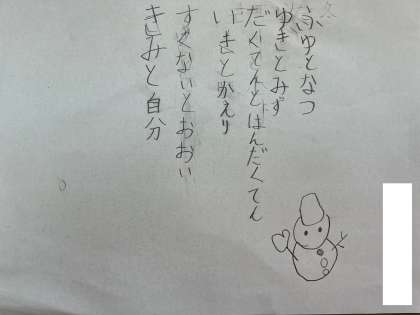 ふゆとなつ
ゆきとみず
だくてんとはんだくてん
いきとかえり
すくないとおおい
きみと自分